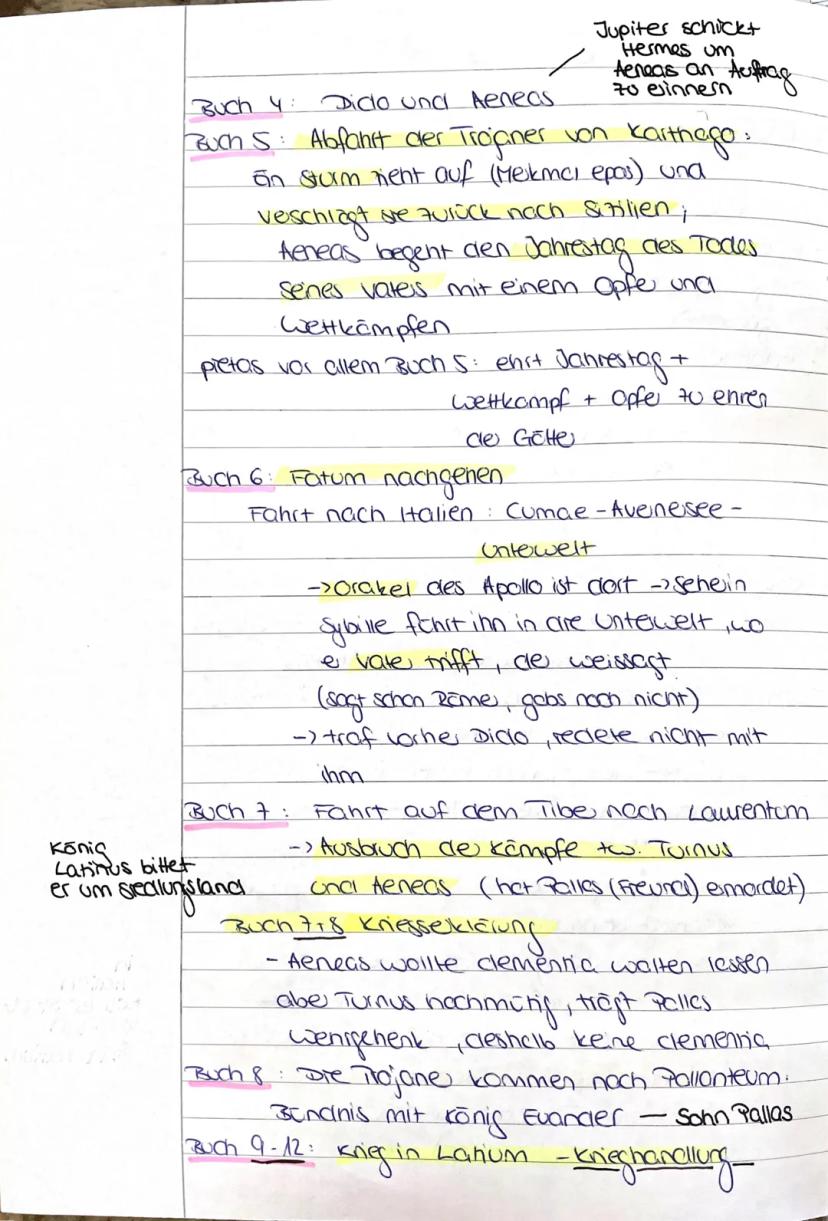 Jupiter schickt
Hermes um
Aeneas an Auftrag
zu erinnern
Buch 4: Dido und Aeneas
Buch 5: Abfahrt der Trojaner von Karthago:
Ein Sturm zieht auf (Merkmal epos) und
verschlägt sie zurück nach Sizilien;
Aeneas begeht den Jahrestag des Todes
seines Vaters mit einem Opfer und
Wettkämpfen
pietas vor allem Buch 5: ehrt Jahrestag +
Wettkampf + Opfer zu ehren
der Götter
Buch 6: Fatum nachgehen
Fahrt nach Italien: Cumae - Avernersee -
Unterwelt
-> Orakel des Apollo ist dort -> Seherin
Sybille führt ihn in die Unterwelt, wo
er Vater trifft, der weissagt
(sagt schon Römer, gabs noch nicht)
-> traf vorher Dido, redete nicht mit
ihm
Buch 7: Fahrt auf dem Tiber nach Laurentum
-> Ausbruch der Kämpfe zw. Turnus
und Aeneas (hat Pallas (Freund) ermordet)
König
Latinus bittet
er um Siedlungsland
Buch 7+8 Kriegserklärung
- Aeneas wollte clementia walten lassen
aber Turnus hochmütig, trägt Pallas
Wehrgehenk, deshalb keine clementia
Buch 8: Die Trojaner kommen nach Pallanteum.
Bündnis mit König Euander — Sohn Pallas
Buch 9-12: Krieg in Latium - Krieghandlung